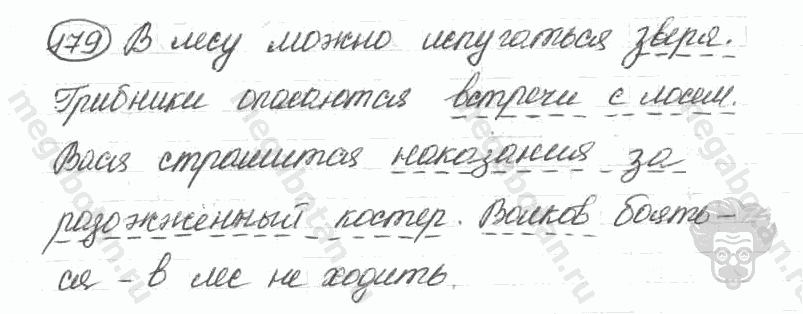 179 В лесу можно испугаться зверя.
Грибники опасаются встречи с лосем.
Вася страшится наказания за
разожжённый костер. Волков боять-
ся - в лес не ходить.
megabotan.ru
megabotan.ru
megabotan.ru